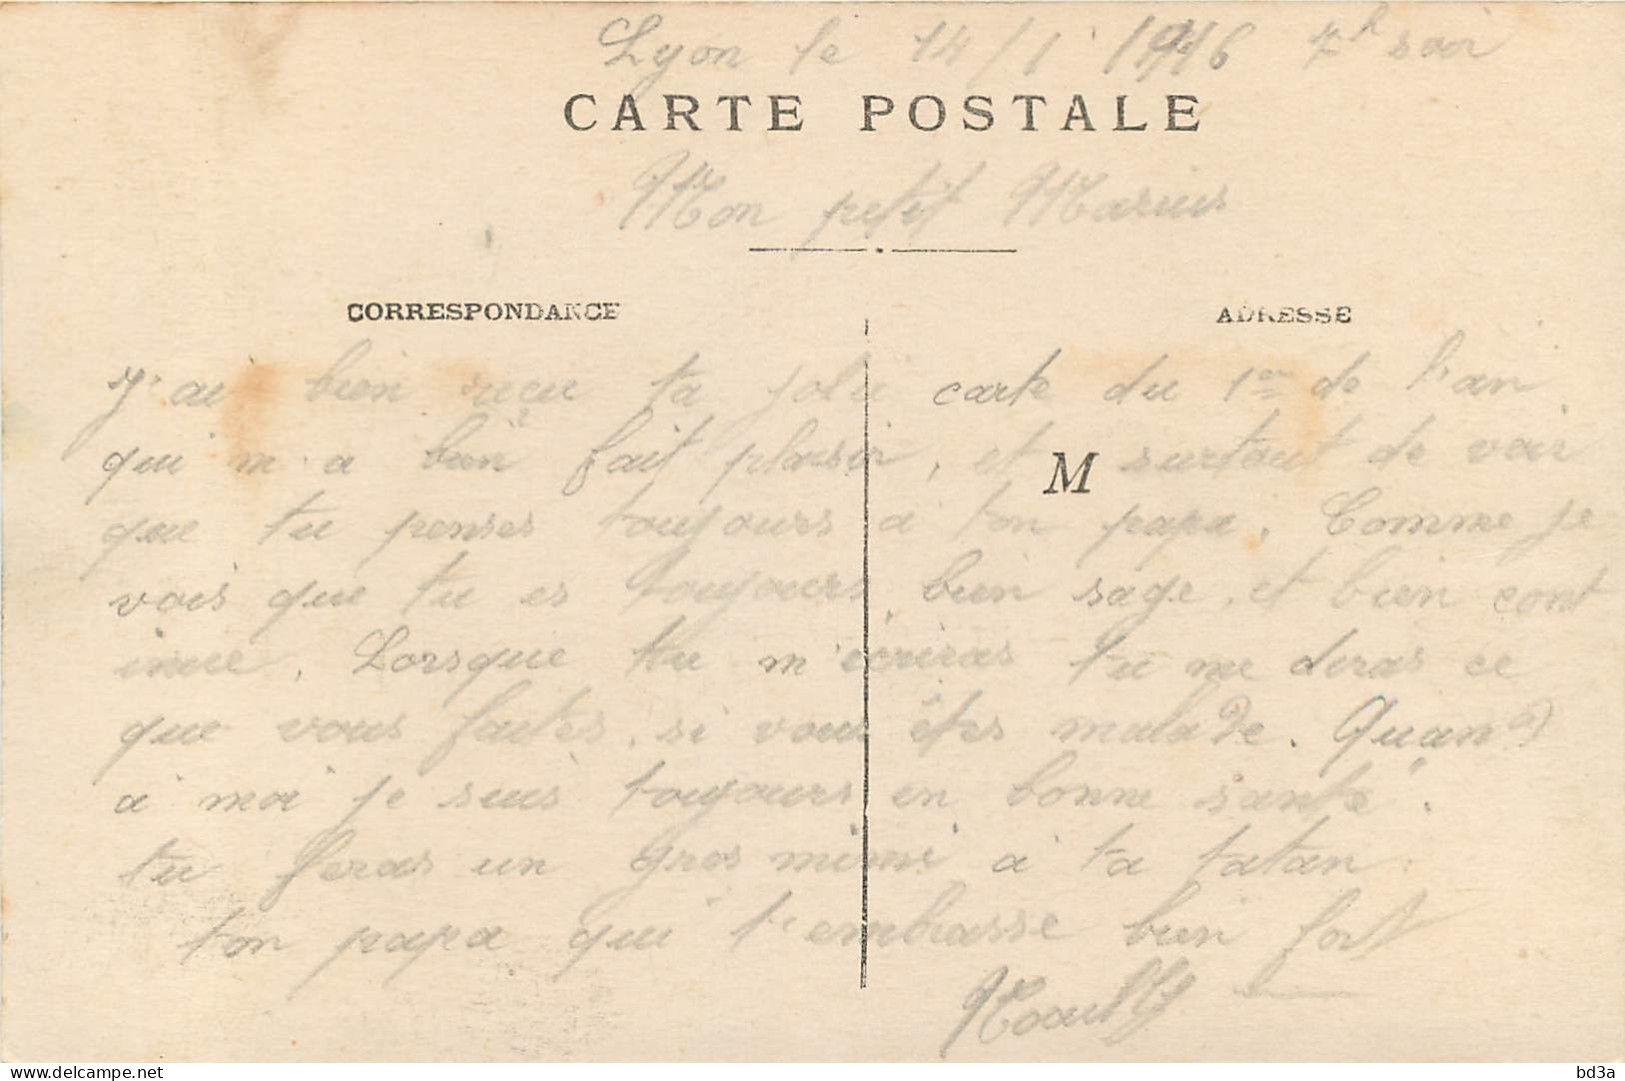 Lyon le 14/1 1916 7h soir
CARTE POSTALE
Mon petit Marius
CORRESPONDANCE
ADRESSE
J'ai bien reçu ta jolie carte du 1er de l'an
qui m'a bien fait plaisir, et surtout de voir
M
que tu penses toujours à ton papa. Comme je
vois que tu es toujours bien sage, et bien cont
inue. Lorsque tu m'écriras tu me diras ce
que vous faites, si vous êtes malade. Quand
à moi je suis toujours en bonne santé.
tu feras un gros mimi à ta tatan.
ton papa qui t'embrasse bien fort
delcampe.net
bd3a